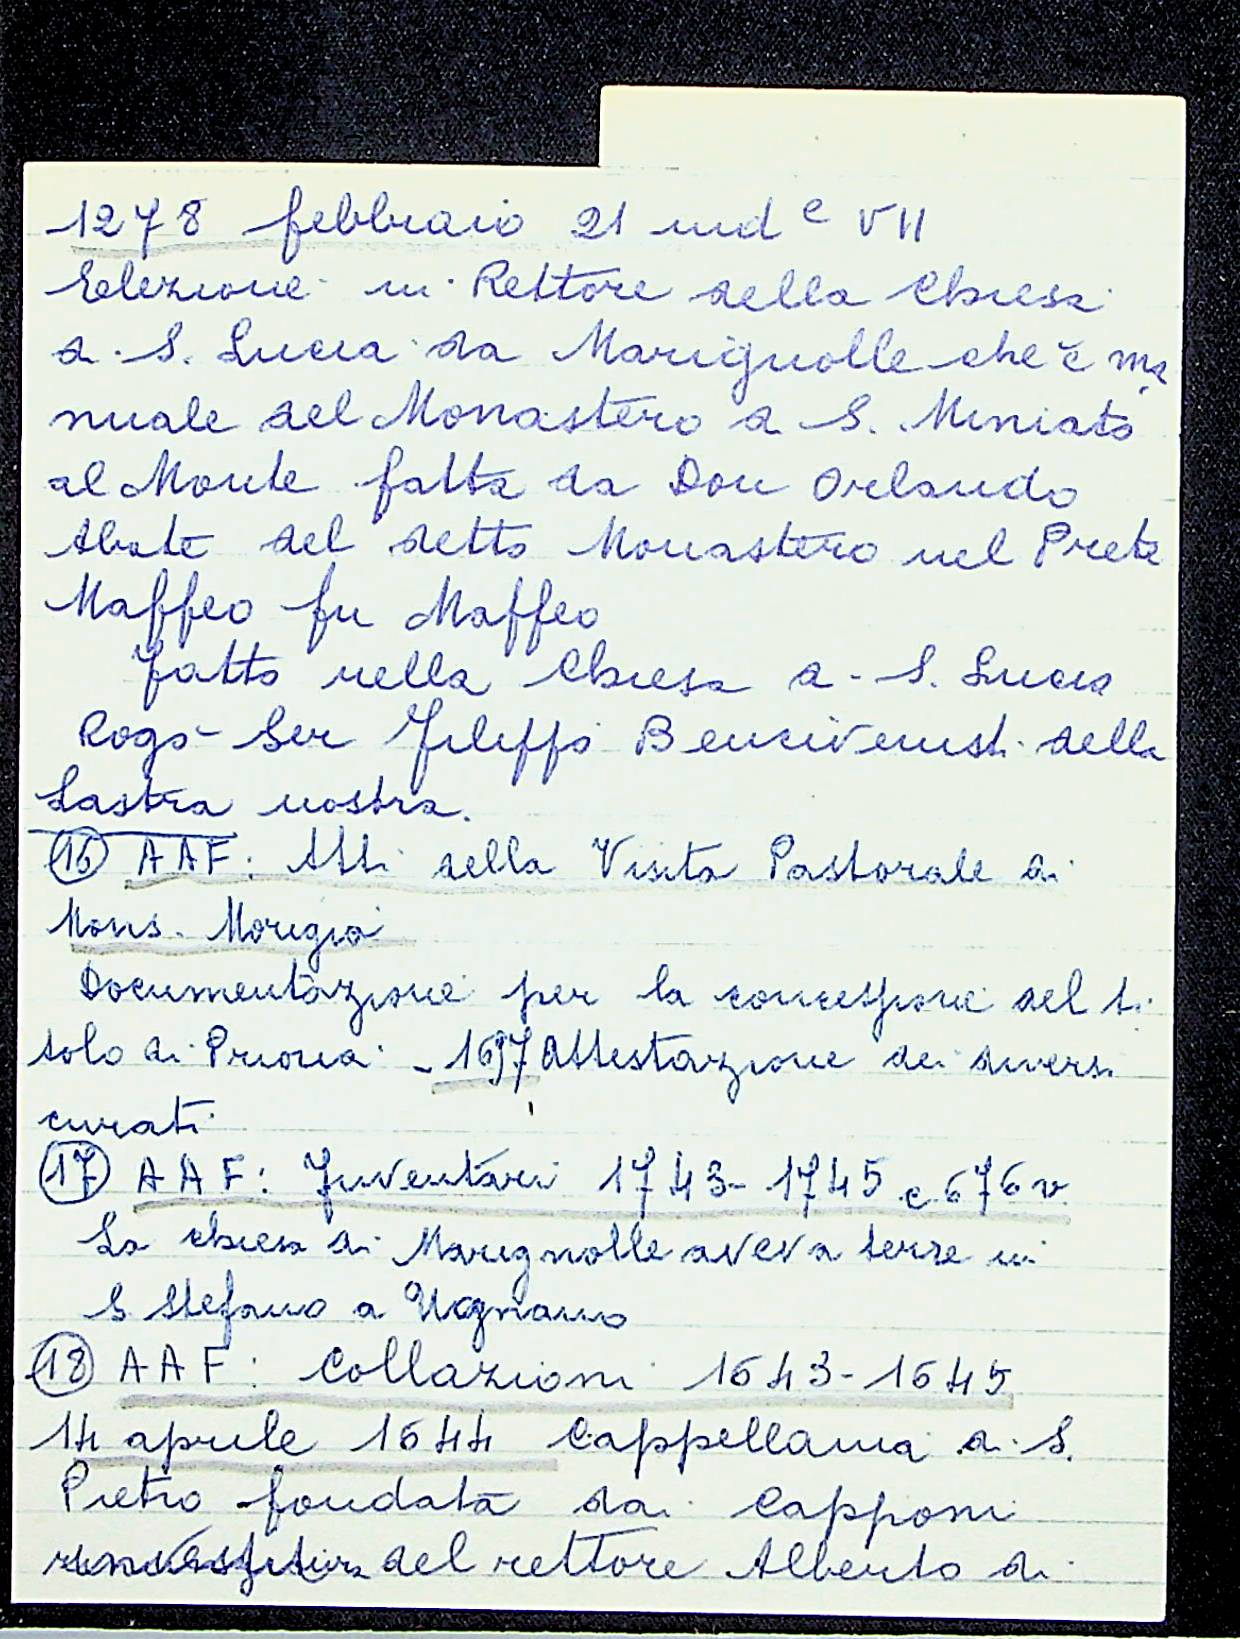 1278 febbraio 21 ind e VII
Elezione in Rettore della Chiesa
di S. Lucia da Marignolle che è ma
nuale del Monastero di S. Miniato
al Monte fatta da Don Orlando
Abate del detto Monastero nel Prete
Maffeo fu Maffeo
Fatto nella Chiesa di S. Lucia
Rogò Ser Filippo Bencivenisti della
Lastra nostra.
16 AAF: Atti della Visita Pastorale di
Mons. Morigia
Documentazione per la concessione del ti
tolo di Prioria - 1697 Attestazione dei diversi
curati
17 AAF: Inventari 1743-1745 c 676 v
La chiesa di Marignolle aveva terre in
S Stefano a Ugnano
18 AAF: Collazioni 1643-1645
14 aprile 1644 Cappellania di S.
Pietro fondata dai Capponi
del rettore Alberto di